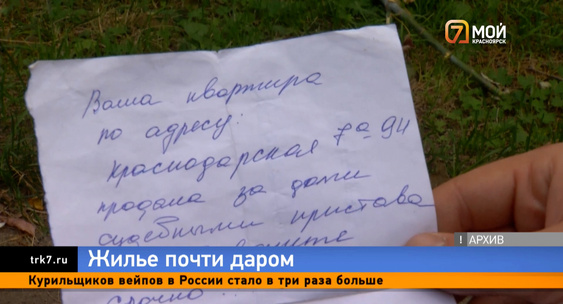 7 МОЙ
КРАСНОЯРСК
Ваша квартира
по адресу:
Краснодарская 7а 94
продана за долги
судебными пристава
! АРХИВ
trk7.ru
Жилье почти даром
Курильщиков вейпов в России стало в три раза больше
срочно